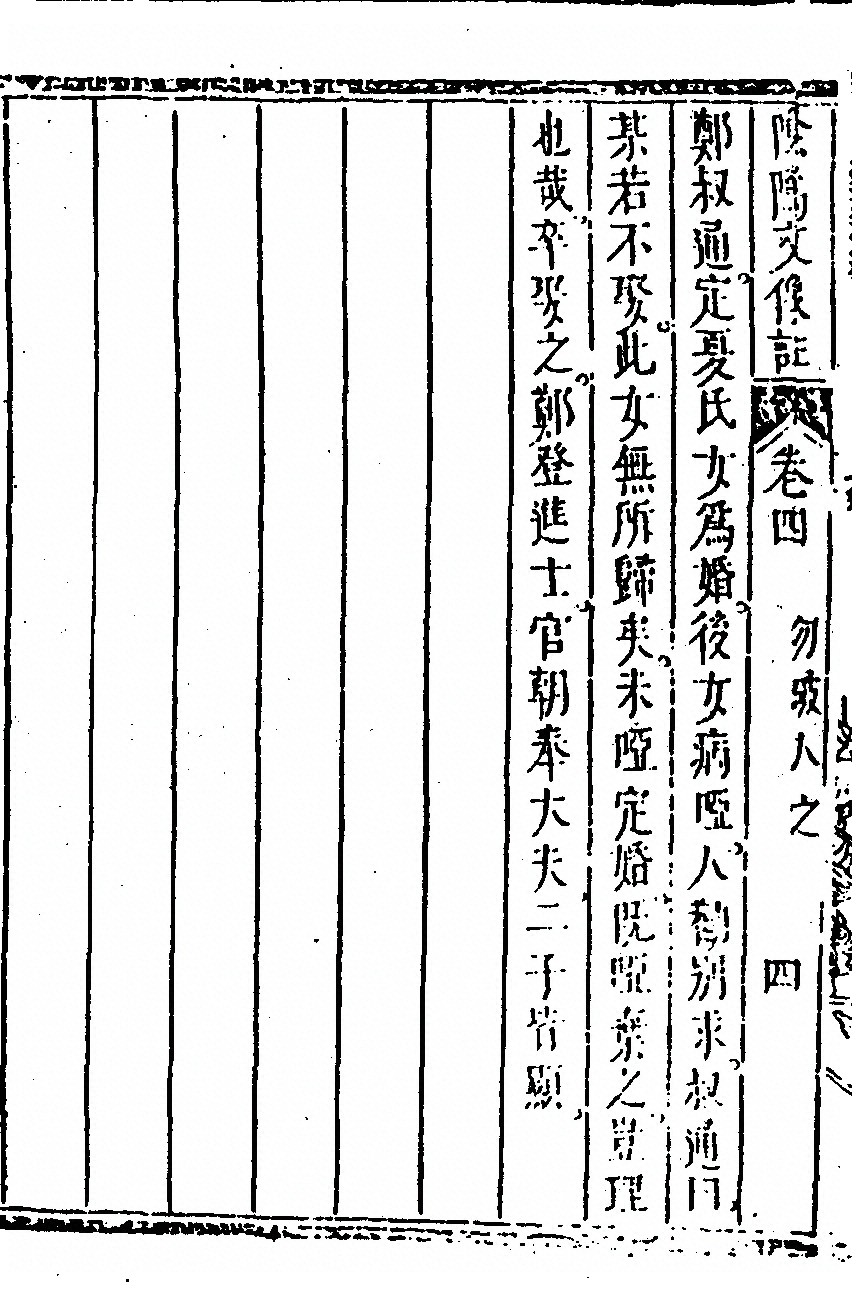 陰隲文像註 卷四 勿破人之 四
鄭叔通定夏氏女爲婚後女病啞人勸別求叔通曰
某若不娶此女無所歸矣未啞定婚旣啞棄之豈理
也哉卒娶之鄭登進士官朝奉大夫二子皆顯